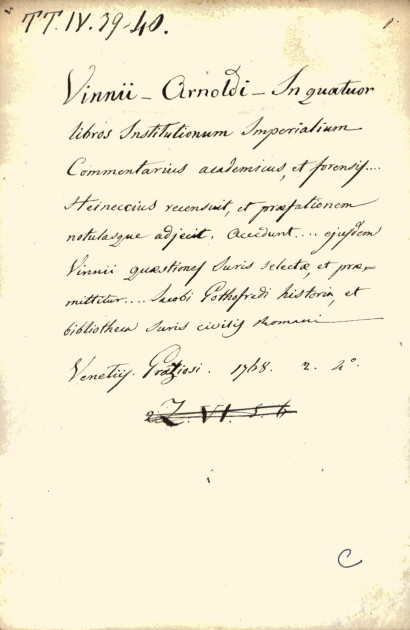 TT. IV. 39-40.
Vinnii - Arnoldi - In quatuor
libros Institutionum Imperialium
Commentarius academicus, et forensis....
Heineccius recensuit, et præfationem
notulasque adjecit. Accedunt.... ejusdem
Vinnii quæstiones Juris selectæ, et præ-
mittitur.... Jacobi Gothofredi historia, et
bibliotheca Juris civilis Romani
Venetiis. Graziosi. 1768. 2. 4°.
Z. VI. 5. 6
C